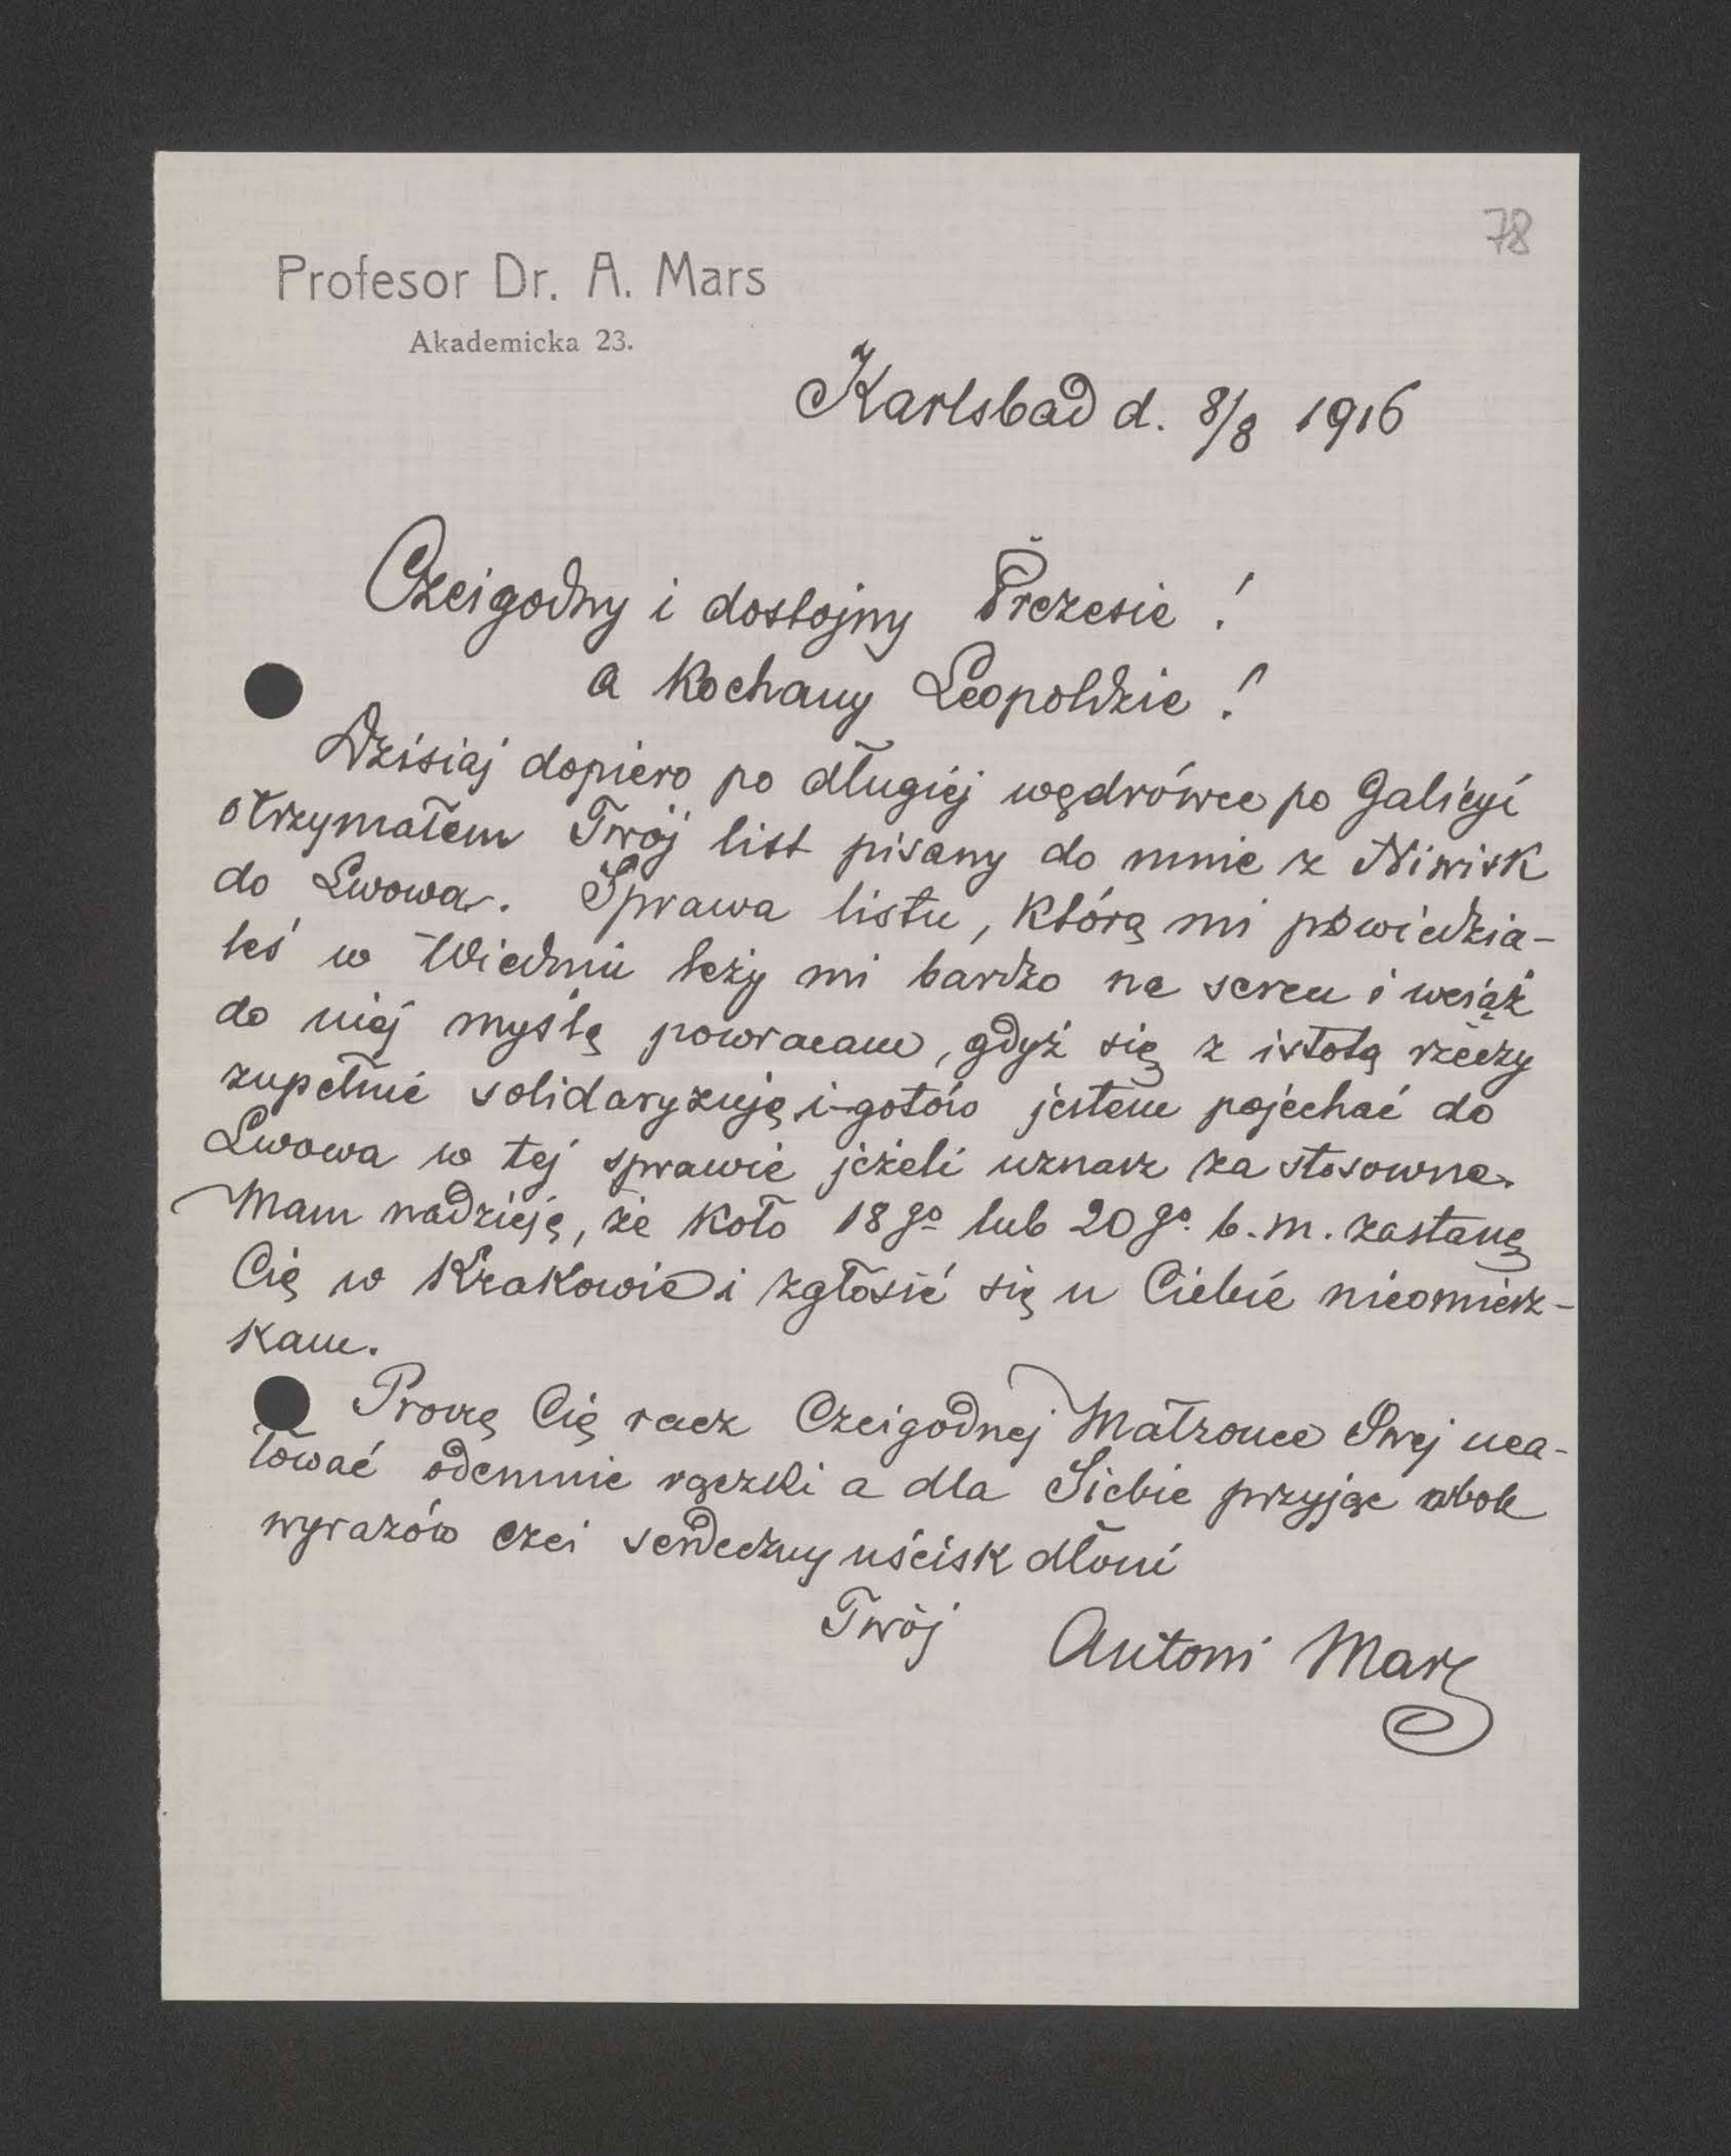 78
Profesor Dr. A. Mars
Akademicka 23.
Karlsbad d. 8/8 1916
Czcigodny i dostojny Prezesie!
a kochany Leopoldzie!
Dzisiaj dopiero po długiej wędrówce po Galicyi
otrzymałem Twój list pisany do mnie z Niwisk
do Lwowa. Sprawa listu, którą mi powiedzia-
łeś w Wiedniu leży mi bardzo na sercu i wciąż
do niej myślą powracam, gdyż się z istotą rzeczy
zupełnie solidaryzuję i gotów jestem pojechać do
Lwowa w tej sprawie jeżeli uznasz za stosowne.
Mam nadzieję, że koło 18go lub 20go. b.m. zastanę
Cię w Krakowie i zgłosić się u Ciebie nieomiesz-
kam.
Proszę Cię racz Czcigodnej Małżonce Swej uca-
łować odemnie rączki a dla Siebie przyjąć obok
wyrazów czci serdeczny uścisk dłoni
Twój Antoni Mars